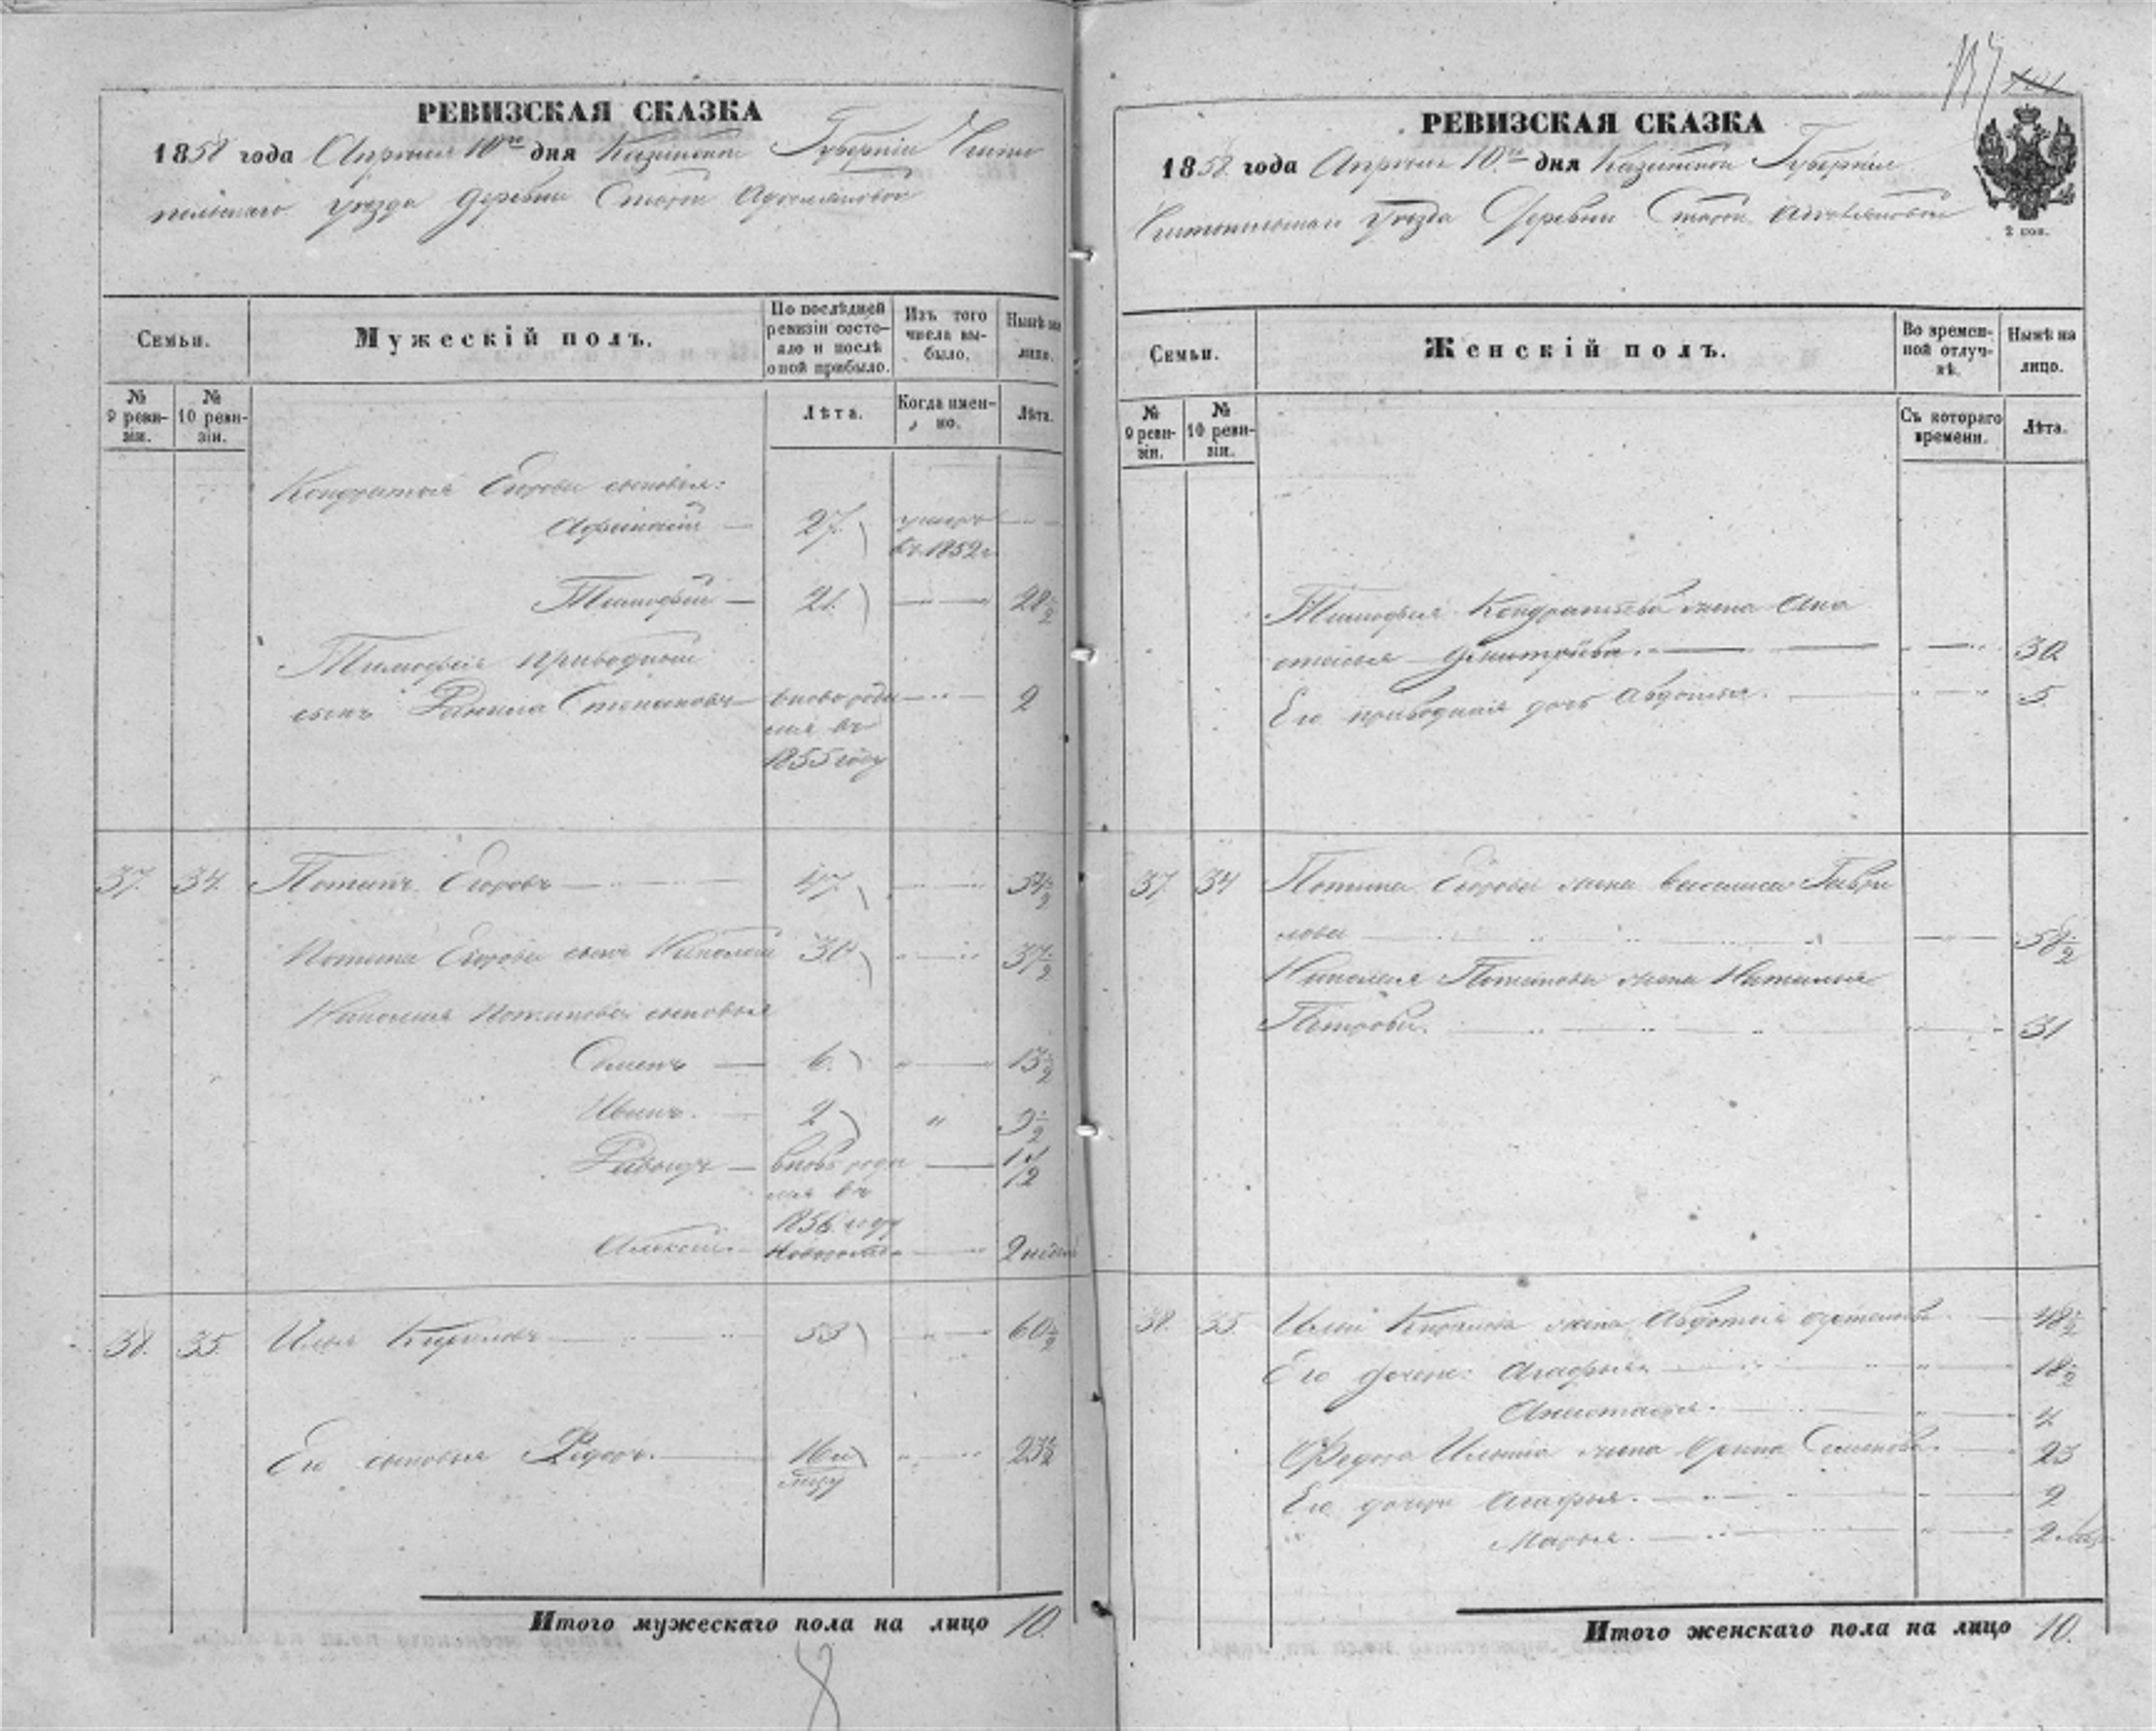 РЕВИЗСКАЯ СКАЗКА
1858 года Апреля 10го дня Казанской Губерніи Чисто
польскаго уезда деревни Старой
Семьи.
Мужескій полъ.
По послѣдней ревизіи состо-
яло и послѣ
оной прибыло.
Изъ того
числа вы-
было.
Нынѣ на
лицо.
№
9 реви-
зіи.
№
10 реви-
зіи.
Лѣта.
Когда имен-
но.
Лѣта.
Кондратья Егорова сыновья:
Афанасій 27. умеръ
въ 1852 г
Тимофей 21. 28 1/2
Тимофея приводной
сынъ Степановъ вновь роди 2
лся въ
1855 году
37. 34. Потапъ Егоровъ 47. 54 1/2
Потапа Егорова сынъ Николай 30 37 1/2
Николая Потапова сыновья
Семенъ 6. 13 1/2
Иванъ. 2 9 1/2
вновь роди 1 1/2
лся въ
1856 году
Алексей. 2 недели
38. 35. Илья Кириловъ 53 60 1/2
Его сыновья Федоръ. 16 и 23 1/2
Итого мужескаго пола на лицо 10.
117 121
РЕВИЗСКАЯ СКАЗКА
1858. года Апреля 10го дня Казанской Губерніи
Чистопольскаго Уезда Деревни Старой
2 коп.
Семьи.
Женскій полъ.
Во времен-
ной отлуч-
кѣ.
Нынѣ на
лицо.
№
9 реви-
зіи.
№
10 реви-
зіи.
Съ котораго
времени.
Лѣта.
Тимофея Кондратьева жена Ана
стасья Дмитріева. 30
Его приводная дочь Авдотья. 5
37. 34 Потапа Егорова жена Василиса Гаври
лова 58 1/2
Николая Потапова жена Наталья
Петрова. 31
38. 35. Ильи Кирилова жена Авдотья 48 1/2
Его дочери: Агафья. 18 1/2
Анастасья. 4
Федора Ильина жена Ирина Семенова. 23
Его дочери Агафья. 2
Марья. 2
Итого женскаго пола на лицо 10.